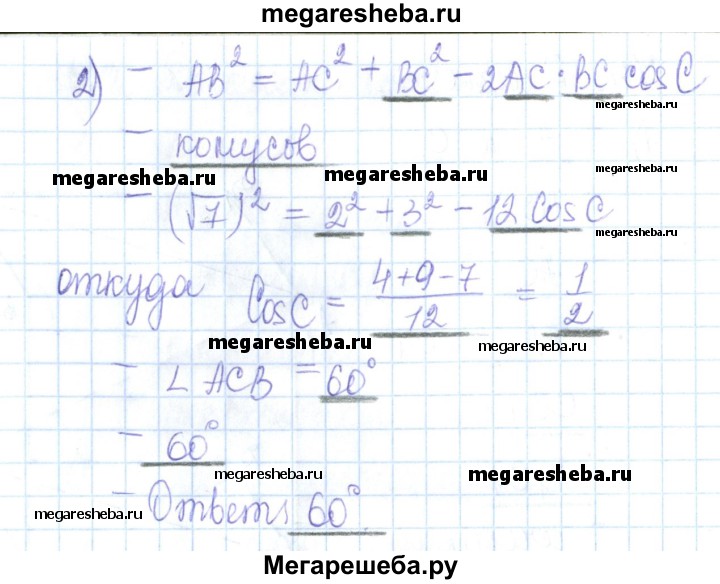 megaresheba.ru
2) - AB² = AC² + BC² - 2AC · BC cos C
megaresheba.ru
- косусов
megaresheba.ru megaresheba.ru
- (√7)² = 2² + 3² - 12 Cos C
megaresheba.ru
откуда Cos C = (4+9-7)/12 = 1/2
megaresheba.ru megaresheba.ru
- ∠ ACB = 60°
- 60°
megaresheba.ru megaresheba.ru
- Ответ: 60°
megaresheba.ru
Мегарешеба.ру